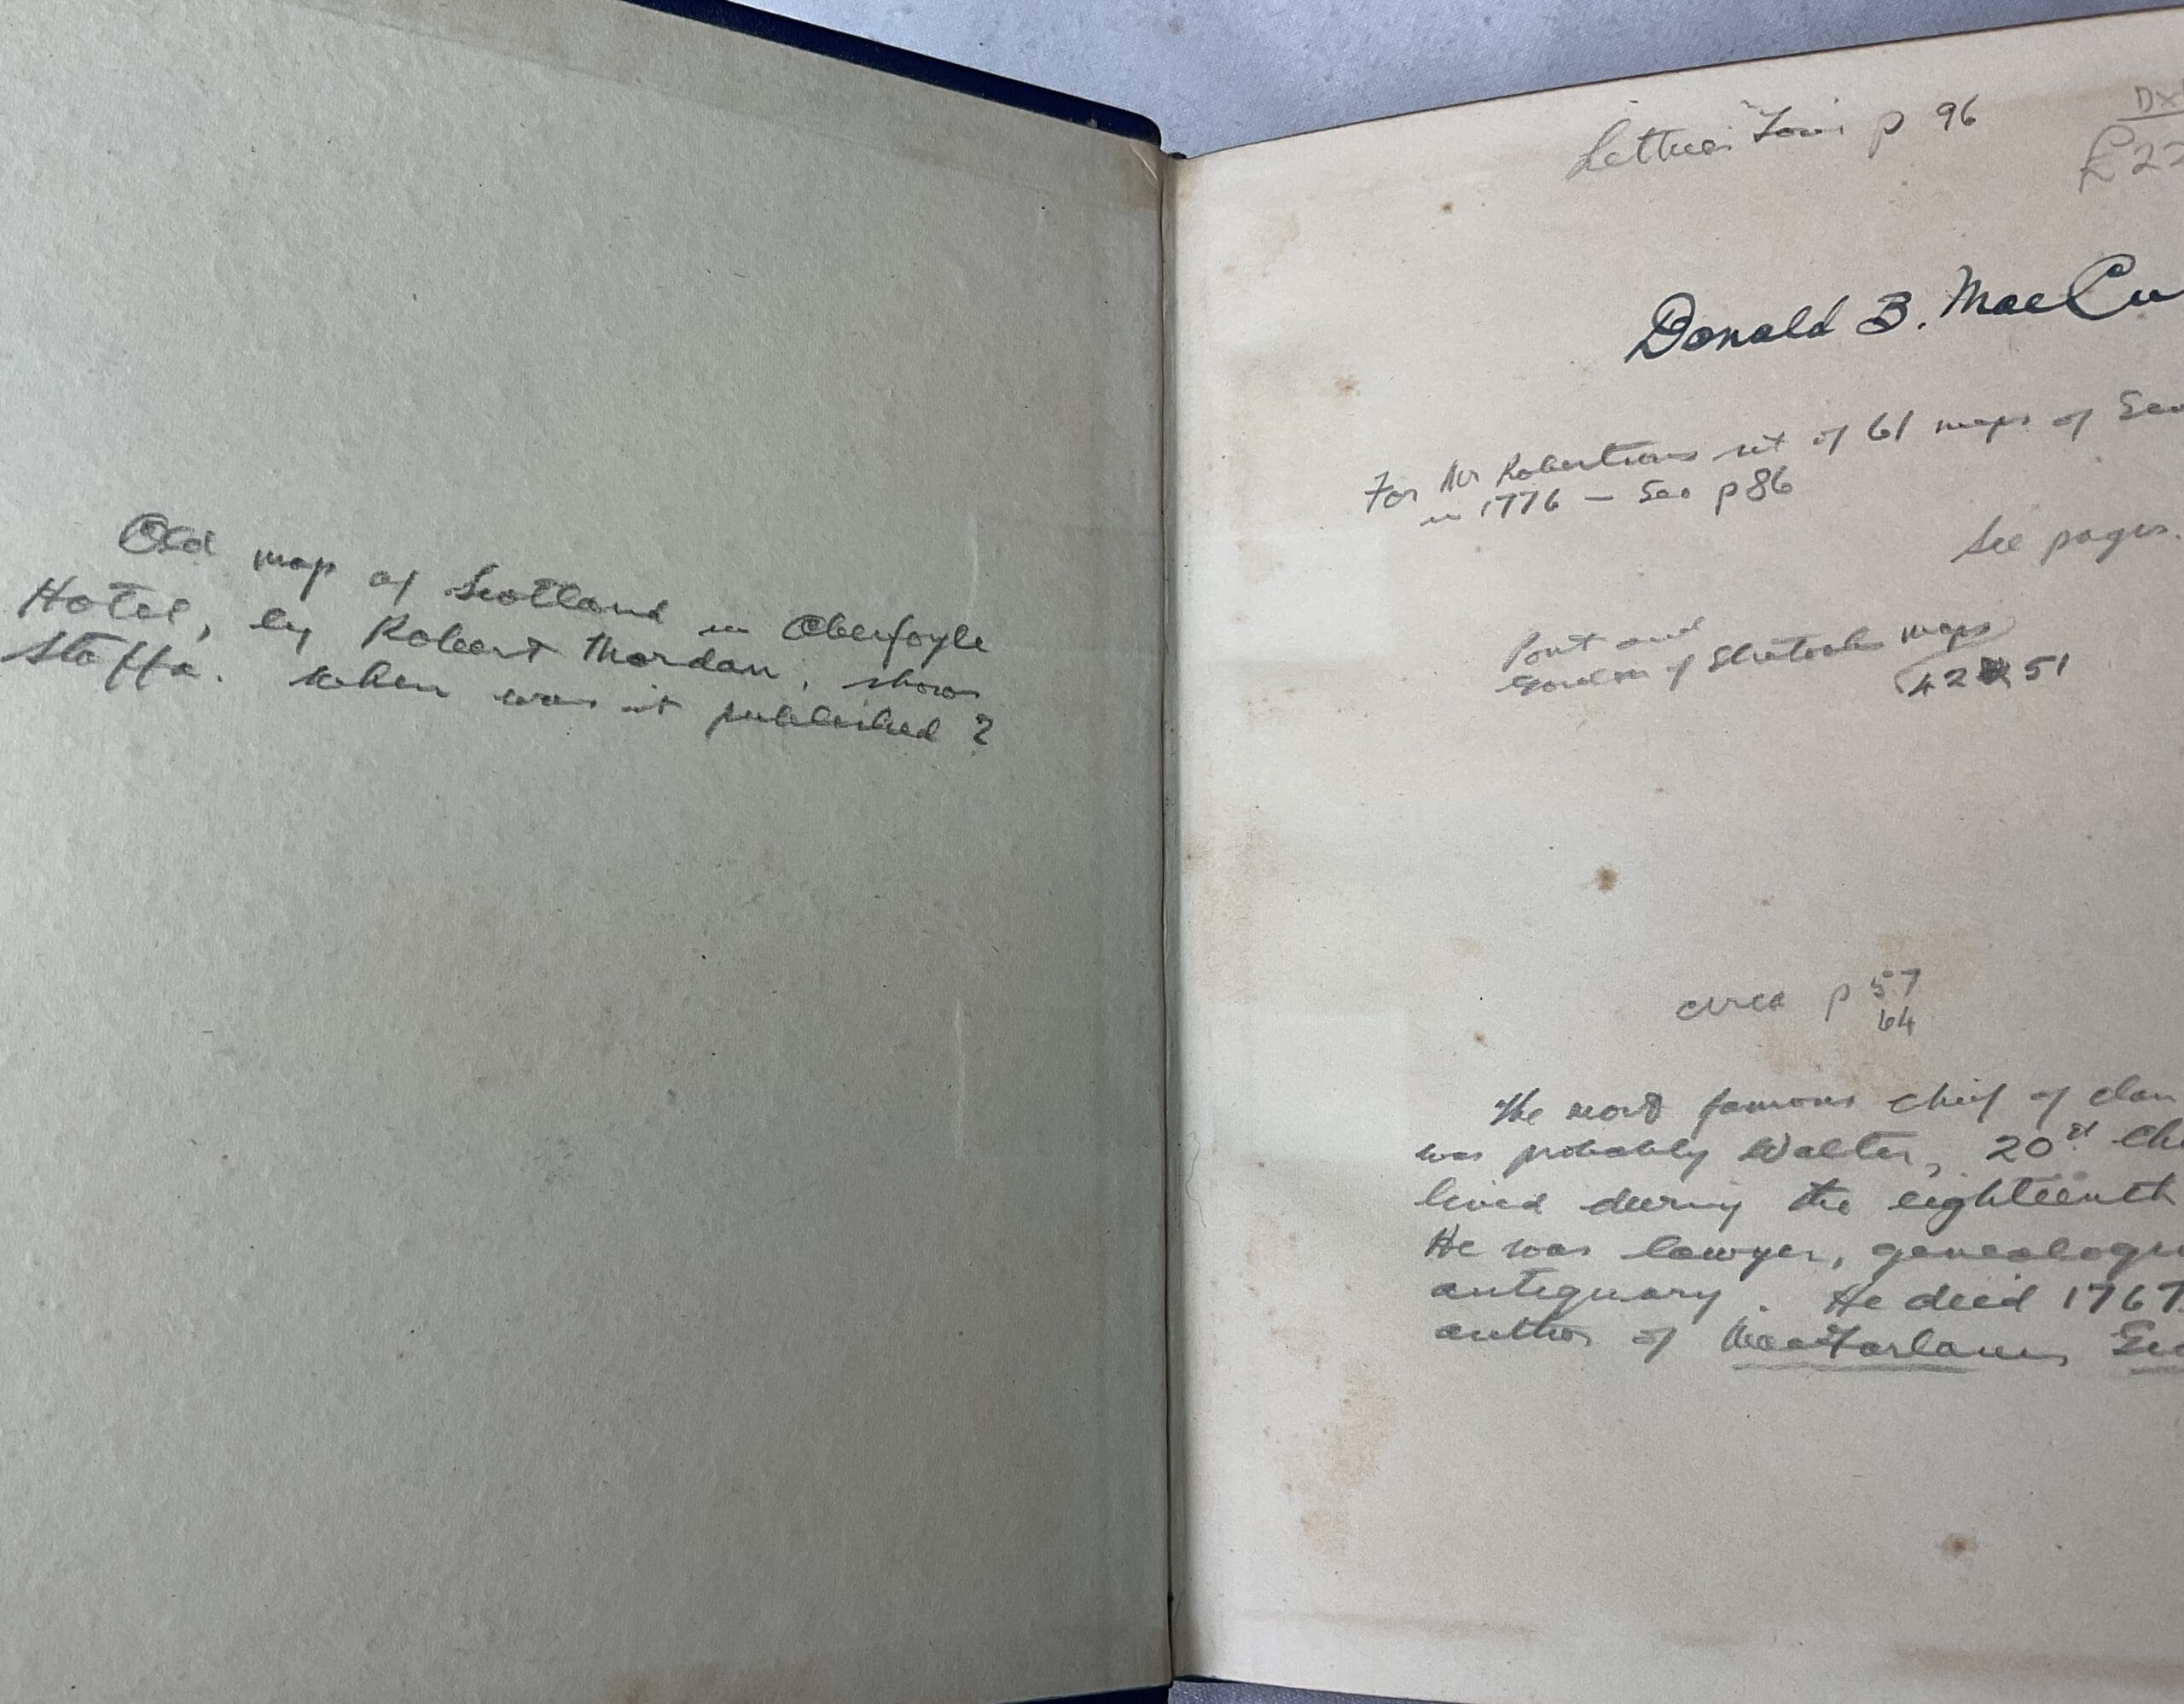 Old map of Scotland in Aberfoyle
Hotel, by Robert Mordan, shows
Staffa. When was it published?
p 96
£2
Donald B. Mac
For Mr Robertsons set of 61 maps of
in 1776 — See p 86
See pages
Pont and
Gordon of Straloch's maps
42 51
area p 57
64
The most famous chief of clan
was probably Walter, 20th
lived during the eighteenth
He was lawyer,
antiquary. He died 1767
author of MacFarlanes